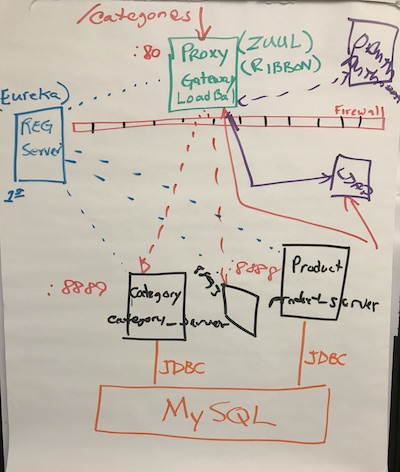 /categories
:80
PROXY
Gateway
Load Bal
(ZUUL)
(RIBBON)
(Eureka)
REG
Server
1st
Firewall
:8889
Category
category_server
:8888
Product
product_server
JDBC
JDBC
MySQL